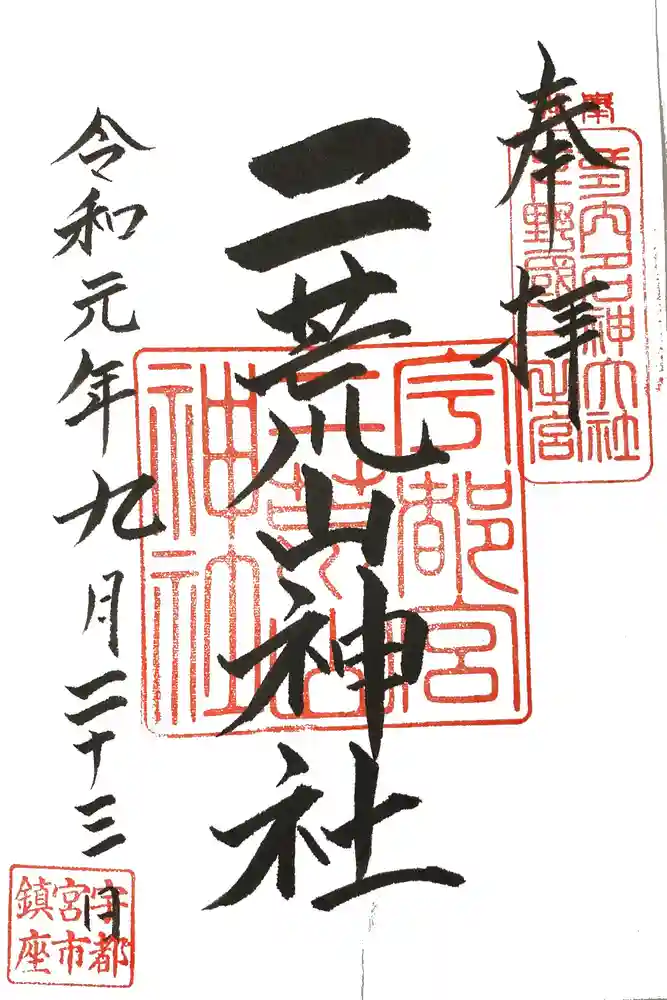 奉拝
内名神大社
下野國一之宮
二荒山神社
宇都宮
二荒山
神社
令和元年九月二十三日
宇都
宮市
鎮座